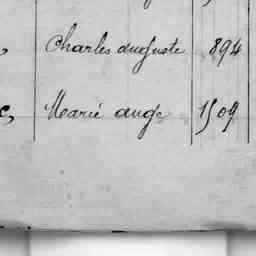 Charles auguste 894
Marie ange 1509